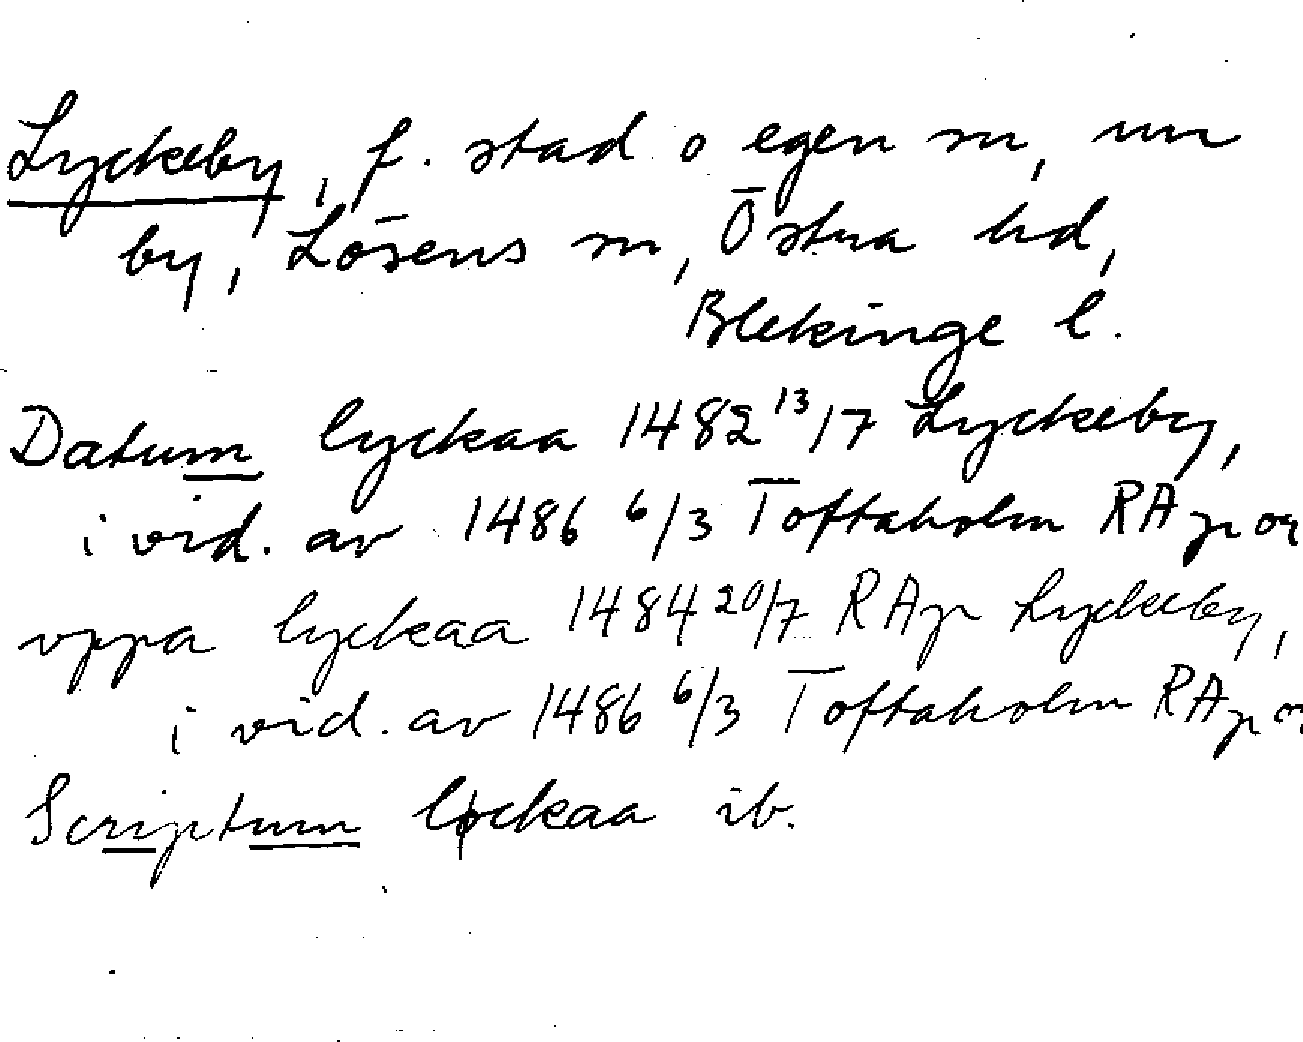 Lyckeby, f. stad o egen sn, nu
by, Lösens sn, Östra hd,
Blekinge l.
Datum lyckaa 1482 13/7 Lyckeby,
i vid. av 1486 6/3 Toftaholm RAp or
vppa lyckaa 1484 20/7 RAp Lyckeby,
i vid. av 1486 6/3 Toftaholm RAp or
Scriptum løckaa ib.